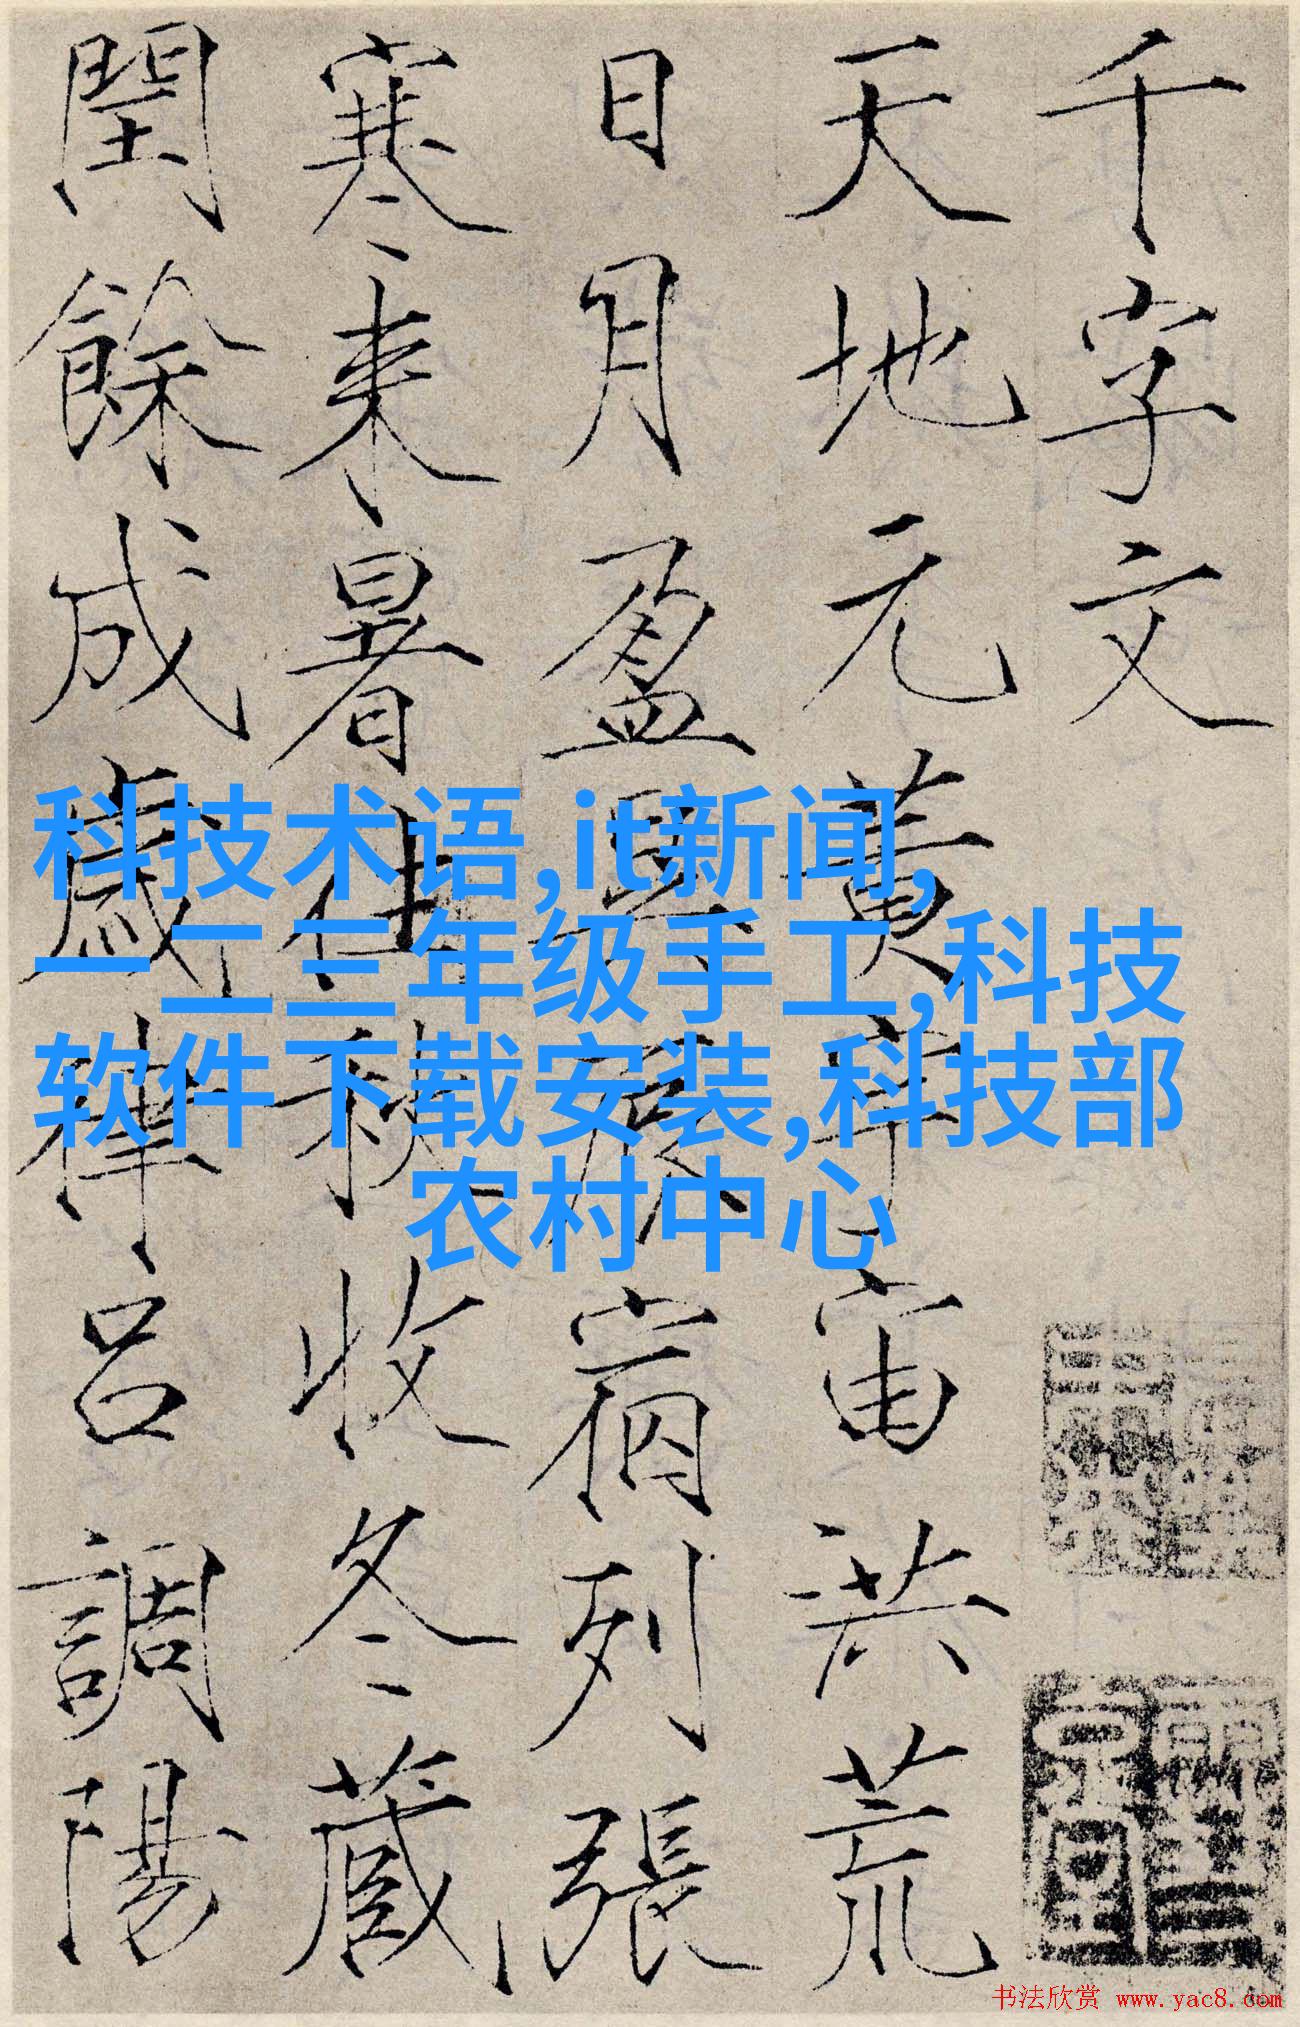 千字文
天地元黃宇宙洪荒
日月盈昃辰宿列張
寒来暑往秋收冬蔵
閏餘成歲律呂調陽
科技术语,it新闻,
一二三年级手工,科技
软件下载安装,科技部
农村中心
书法欣赏 www.yac8.com